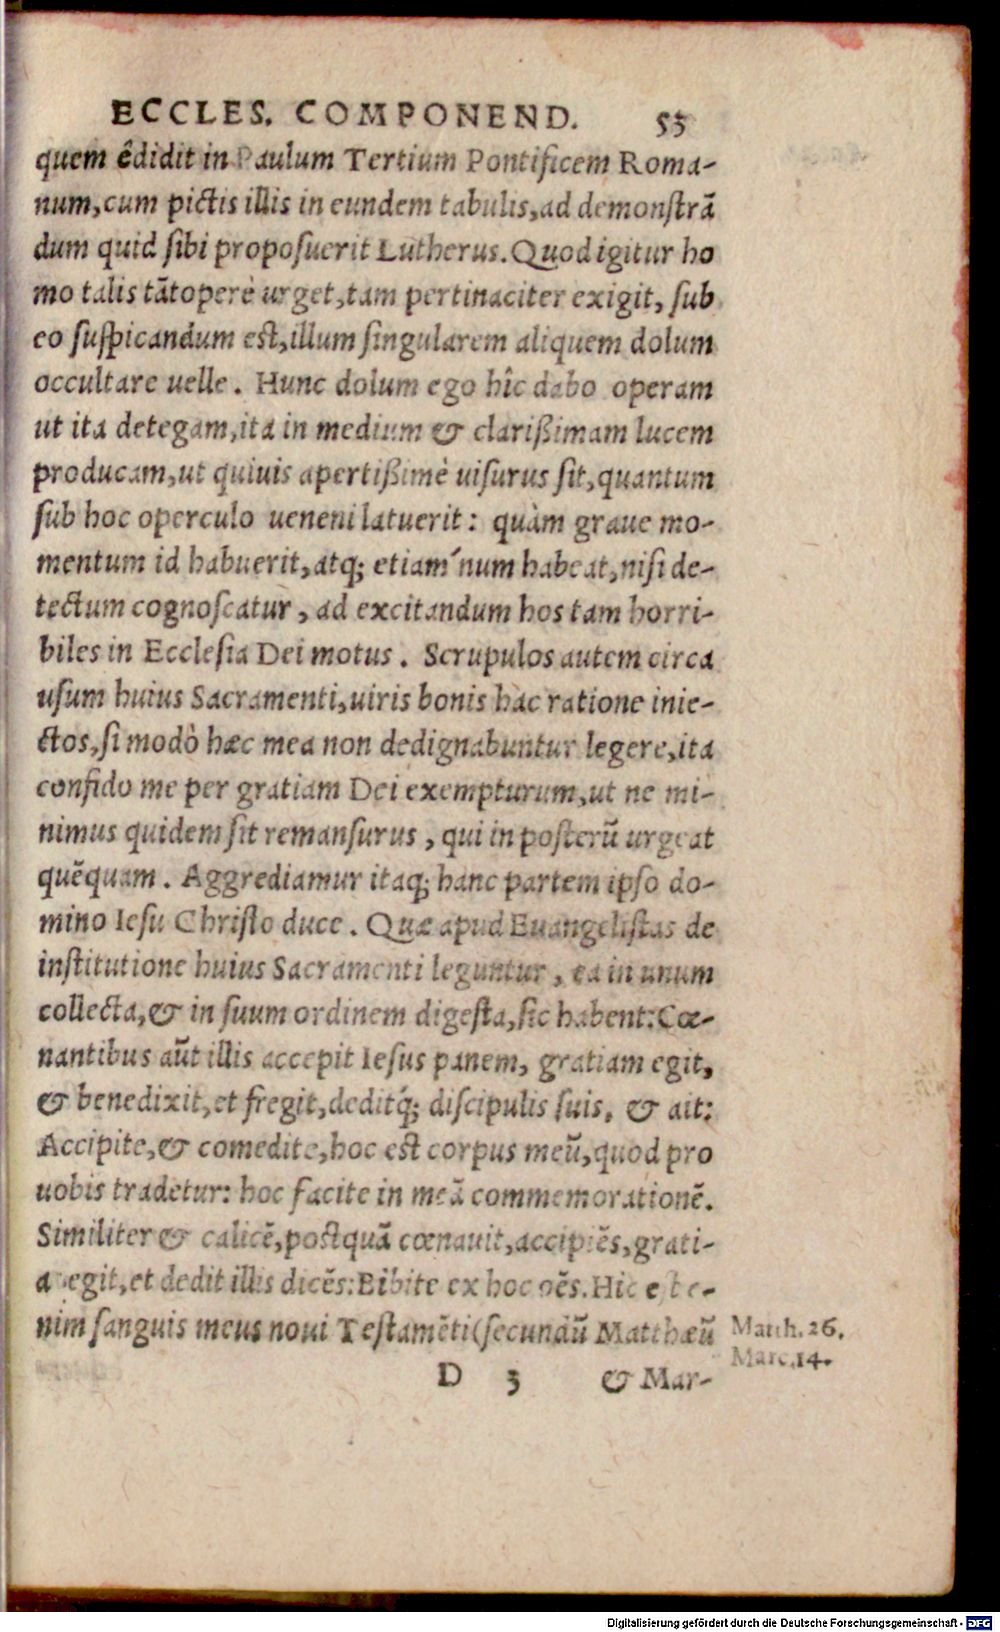 ECCLES. COMPONEND. 53
quem êdidit in Paulum Tertium Pontificem Roma-
num,cum pictis illis in eundem tabulis,ad demonstrã
dum quid sibi proposuerit Lutherus. Quod igitur ho
mo talis tãtoperè urget,tam pertinaciter exigit, sub
eo suspicandum est,illum singularem aliquem dolum
occultare uelle. Hunc dolum ego hîc dabo operam
ut ita detegam,ita in medium & clarißimam lucem
producam,ut quiuis apertißimè uisurus sit,quantum
sub hoc operculo ueneni latuerit: quàm graue mo-
mentum id habuerit,atq; etiam num habeat,nisi de-
tectum cognoscatur, ad excitandum hos tam horri-
biles in Ecclesia Dei motus. Scrupulos autem circa
usum huius Sacramenti,uiris bonis hac ratione inie-
ctos,si modò hæc mea non dedignabuntur legere,ita
confido me per gratiam Dei exempturum,ut ne mi-
nimus quidem sit remansurus, qui in posterũ urgeat
quẽquam. Aggrediamur itaq; hanc partem ipso do-
mino Iesu Christo duce. Quæ apud Euangelistas de
institutione huius Sacramenti leguntur, ea in unum
collecta,& in suum ordinem digesta,sic habent: Cœ-
nantibus aũt illis accepit Iesus panem, gratiam egit,
& benedixit,et fregit,deditq́; discipulis suis, & ait:
Accipite,& comedite,hoc est corpus meũ,quod pro
uobis tradetur: hoc facite in meã commemorationẽ.
Similiter & calicẽ,postquã cœnauit,accipiẽs,grati-
as egit,et dedit illis dicẽs: Bibite ex hoc oẽs. Hic est e-
nim sanguis meus noui Testamẽti(secundũ Matthæũ
Matth. 26.
Marc. 14.
D 3 & Mar-
Digitalisierung gefördert durch die Deutsche Forschungsgemeinschaft - DFG